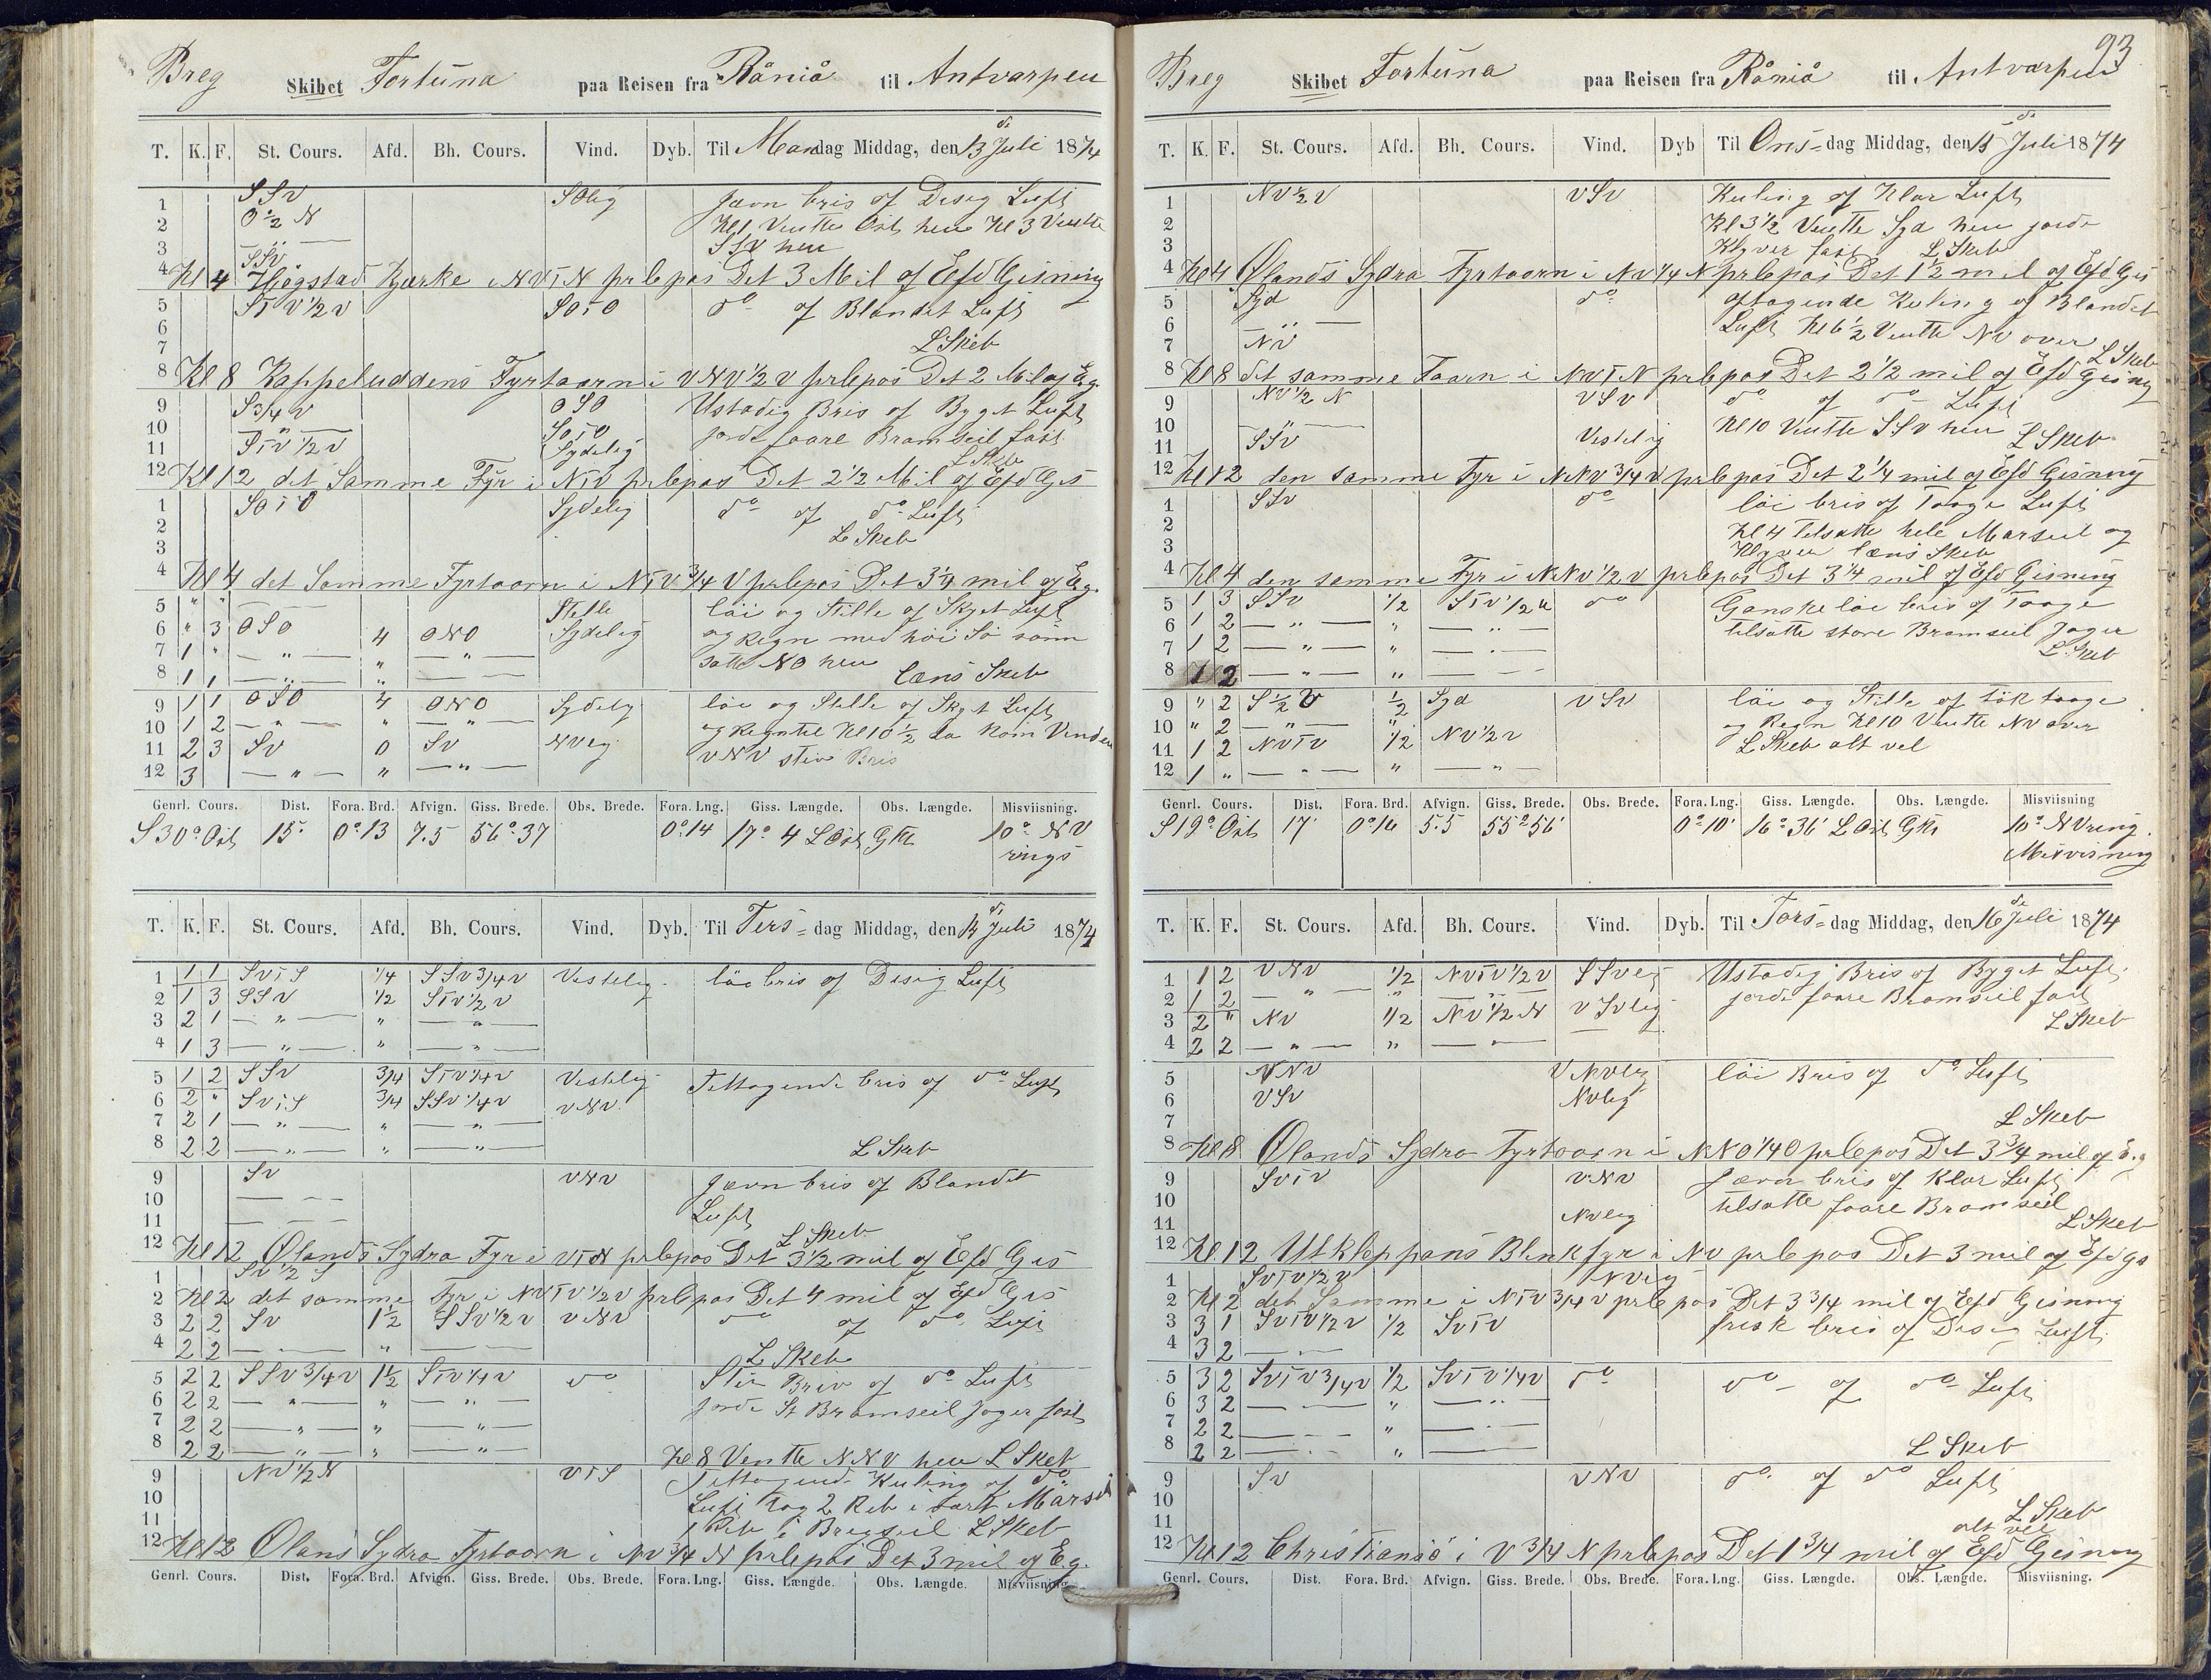 Breg Skibet Fortuna paa Reisen fra Råniå til Antvarpen
T. K. F. St. Cours. Afd. Bh. Cours. Vind. Dyb. Til Mandag Middag, den 13 de Juli 1874
1 SSV SOlig Jævn bris of Disig Luft
2 O½N Kl 1 Ventte Ost hen Kl 3 Ventte
3 — " — SSV hen
4 SSV Kl 4 Högstad Kjærke i NVTN prlepas Det 3 Mil of Efd Gisning
5 STV½V SOTO do of Blandet Luft
6
7 L Skeb
8 Kl 8 Kappeluddens Fyrtaarn i VNV½V prlepas Det 2 Mil of Eg.
9 S3/4V OSO Ustadig Bris of Byget Luft
10 — " — SOTO jorde faare Bramseil fast
11 STV½V Sydelig L Skeb
12 Kl 12 det Samme Fyr i NTV prlepas Det 2½ Mil of Efd Gis
1 SOTO Sydelig do of do Luft
2 L Skeb
3
4 Kl 4 det Samme Fyrtaarn i NTV3/4V prlepas Det 3¼ mil of Eg.
5 " " Stille löi og Stille of Skyet Luft
6 " 3 OSO 4 ONO Sydelig og Regn med höi Sö som
7 1 " — " — " — " — satte NO hen
8 1 1 — " — " — — læns Skeb
9 1 1 OSO 4 ONO Sydelig löi og Stille of Skyet Luft
10 1 2 — " — " — " — og Regn til Kl 10½ da kom Vinden
11 2 3 SV 0 SV NVlig VNV stiv Bris
12 3 — " — " — " —
Genrl. Cours. Dist. Fora. Brd. Afvign. Giss. Brede. Obs. Brede. Fora. Lng. Giss. Længde. Obs. Længde. Misviisning.
S 30° Ost 15' 0°13 7.5 56°.37 0°.14 17° 4 L Ost GK 10° NV
rings
T. K. F. St. Cours. Afd. Bh. Cours. Vind. Dyb. Til Tirs- dag Middag, den 14 de Juli 1874
1 1 1 SVTS ¼ SSV3/4V Vestelig löi bris of Disig Luft
2 1 3 SSV ½ STV½V
3 2 1 — " — " — " —
4 1 3 — " — " — " —
5 1 2 SSV 3/4 STV1/4V Vestelig Tiltagende bris of do Luft
6 2 " SVTS 3/4 SSV1/4V VNV
7 2 1 — " — " — " —
8 2 2 — " — " — " — L Skeb
9 SV VNV Jævn bris of Blandet
10 — — — Luft
11 — — — L Skeb
12 Kl 12 Ølands Sydra Fyr i VTN prlepas Det 3½ mil of Efd Gis
1 SV½S
2 Kl 2 det samme Fyr i NVTV½V prlepas Det 4 mil of Efd Gis
3 2 2 SV 1½ SSV½V VNV do of do Luft
4 2 2 — — " — — L Skeb
5 2 2 SSV3/4V 1½ STV1/4V do Stiv Bris of do Luft
6 2 2 — " — " — " — jorde St Bramseil Jager fast
7 2 2 — " — " — " —
8 2 2 — " — " — " — Kl 8 Ventte NNV hen L Skeb
9 NV½N VTS Tiltagende Kuling of do
10 Luft tog 2 Reb i vart Marseil
11 1 Reb i Brigseil L Skeb
12 Kl 12 Olans Sydra Fyrtaarn i NV3/4N prlepas Det 3 mil of Eg.
Genrl. Cours. Dist. Fora. Brd. Afvign. Giss. Brede. Obs. Brede. Fora. Lng. Giss. Længde. Obs. Længde. Misviisning.
93
Breg Skibet Fortuna paa Reisen fra Råniå til Antvarpen
T. K. F. St. Cours. Afd. Bh. Cours. Vind. Dyb Til Ons- dag Middag, den 15 de Juli 1874
1 NV½V VSV Kuling of Klar Luft
2 Kl 3½ Ventte Syd hen jorde
3 Klyver fast L Skeb
4 Kl 4 Ølands Sydra Fyrtaarn i NV1/4N prlepas Det 1½ mil of Efd Gis
5 Syd do aftagende Kuling of Blandet
6 — " — Luft Kl 6½ Ventte NV over
7 NV L Skeb
8 Kl 8 det samme Taarn i NVTN prlepas Det 2½ mil of Efd Gisning
9 NV½N VSV do of do Luft
10 — " — Kl 10 Ventte SSV hen
11 SSV Vestelig L Skeb
12 Kl 12 den samme Fyr i NNV3/4V prlepas Det 2¼ mil of Efd Gisning
1 SSV do löi bris of Taage Luft
2 Kl 4 tilsatte hele Marseil og
3 Klyver læns Skeb
4 Kl 4 den samme Fyr i NNV½V prlepas Det 3¼ mil of Efd Gisning
5 1 3 SSV ½ STV½V do Ganske löi bris of Taage
6 1 2 — " — " — " — tilsatte store Bramseil Jager
7 1 2 — " — " — " — L Skeb
8 1 2 — " — " — —
9 " 2 S½V ½ Syd VSV löi og Stille of tök taage
10 " 2 — " — " og Regn Kl 10 Ventte NV over
11 1 2 NVTV ½ NV½V L Skeb alt vel
12 1 " — " — " — " —
Genrl. Cours. Dist. Fora. Brd. Afvign. Giss. Brede. Obs. Brede. Fora. Lng. Giss. Længde. Obs. Længde. Misviisning
S 19° Ost 17' 0°16 5.5 55°56' 0°10' 16°36' L Ost GK 10° NVring.
Misvisning
T. K. F. St. Cours. Afd. Bh. Cours. Vind. Dyb. Til Tors- dag Middag, den 16 de Juli 1874
1 1 2 VNV ½ NVTV½V SSVlig Ustadig Bris of Byget Luft
2 1 2 — " — " — " — jorde faare Bramseil fast
3 2 " NV ½ NV½N VSVlig L Skeb
4 2 2 — " — " — " —
5 NNV VNVlig löi Bris of do Luft
6 VSV NVlig
7 L Skeb
8 Kl 8 Ølands Sydra Fyrtaarn i NNO1/4O prlepas Det 3 3/4 mil of E.g
9 SVTV VNV Jævn bris of Klar Luft
10 tilsatte faare Bramseil
11 NVlig L Skeb
12 Kl 12 Utkleppans Blenkfyr i NV prlepas Det 3 mil of Efd gs
1 SVTV½V NVlig
2 Kl 2 det Samme i NTV3/4V prlepas Det 3 3/4 mil of Efd Gisning
3 3 1 SVTV½V ½ SVTV frisk bris of Disig Luft
4 3 2 — —
5 3 2 SVTV3/4V ½ SVTV1/4V do do of do Luft
6 3 2 — — " — " —
7 2 2 — — " — —
8 2 2 — — " — — L Skeb
9 SV VNV do of do Luft
10 L Skeb
11 alt vel
12 Kl 12 Christiansö i V3/4N prlepas Det 1 3/4 mil of Efd Gisning
Genrl. Cours. Dist. Fora. Brd. Afvign. Giss. Brede. Obs. Brede. Fora. Lng. Giss. Længde. Obs. Længde. Misviisning.